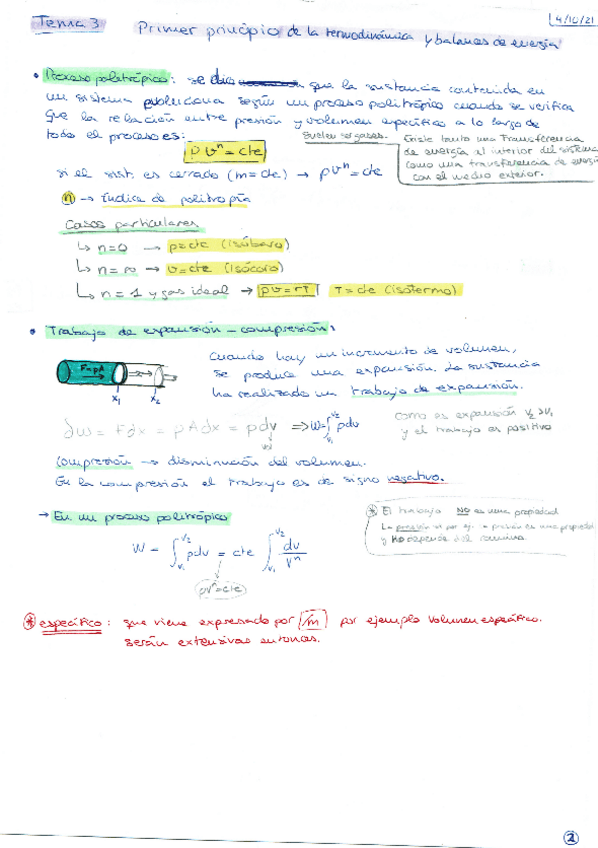 Tema 3 Primer principio de la termodinámica y balances de energía 4/10/21
• Proceso politrópico: se dice que la sustancia contenida en
un sistema evoluciona según un proceso politrópico cuando se verifica
que la relación entre presión y volumen específico a lo largo de
todo el proceso es: suelen ser gases.
Existe tanto una transferencia
de energía al interior del sistema
como una transferencia de energía
con el medio exterior.
pvⁿ = cte
si el sist. es cerrado (m = cte) → pVⁿ = cte
(n) → índice de politropía
Casos particulares
↳ n=0 → p=cte (isóbaro)
↳ n=∞ → v=cte (isócoro)
↳ n=1 y gas ideal → pv=rT T=cte (isotermo)
• Trabajo de expansión - compresión:
F=pA
x₁ x₂
Cuando hay un incremento de volumen,
se produce una expansión. La sustancia
ha realizado un trabajo de expansión.
∂W = Fdx = pAdx = pdV ⇒ W=∫V₁V₂ pdV
vol
como es expansión V₂>V₁
y el trabajo es positivo
Compresión → disminución del volumen.
En la compresión el trabajo es de signo negativo.
→ En un proceso politrópico
W = ∫V₁V₂ pdV = cte ∫V₁V₂ dV/Vⁿ
pVⁿ=cte
* El trabajo NO es una propiedad
La presión si por ej. la presión es una propiedad
y NO depende del camino.
* específico: que viene expresado por m por ejemplo volumen específico.
serán extensivas entonces.
2